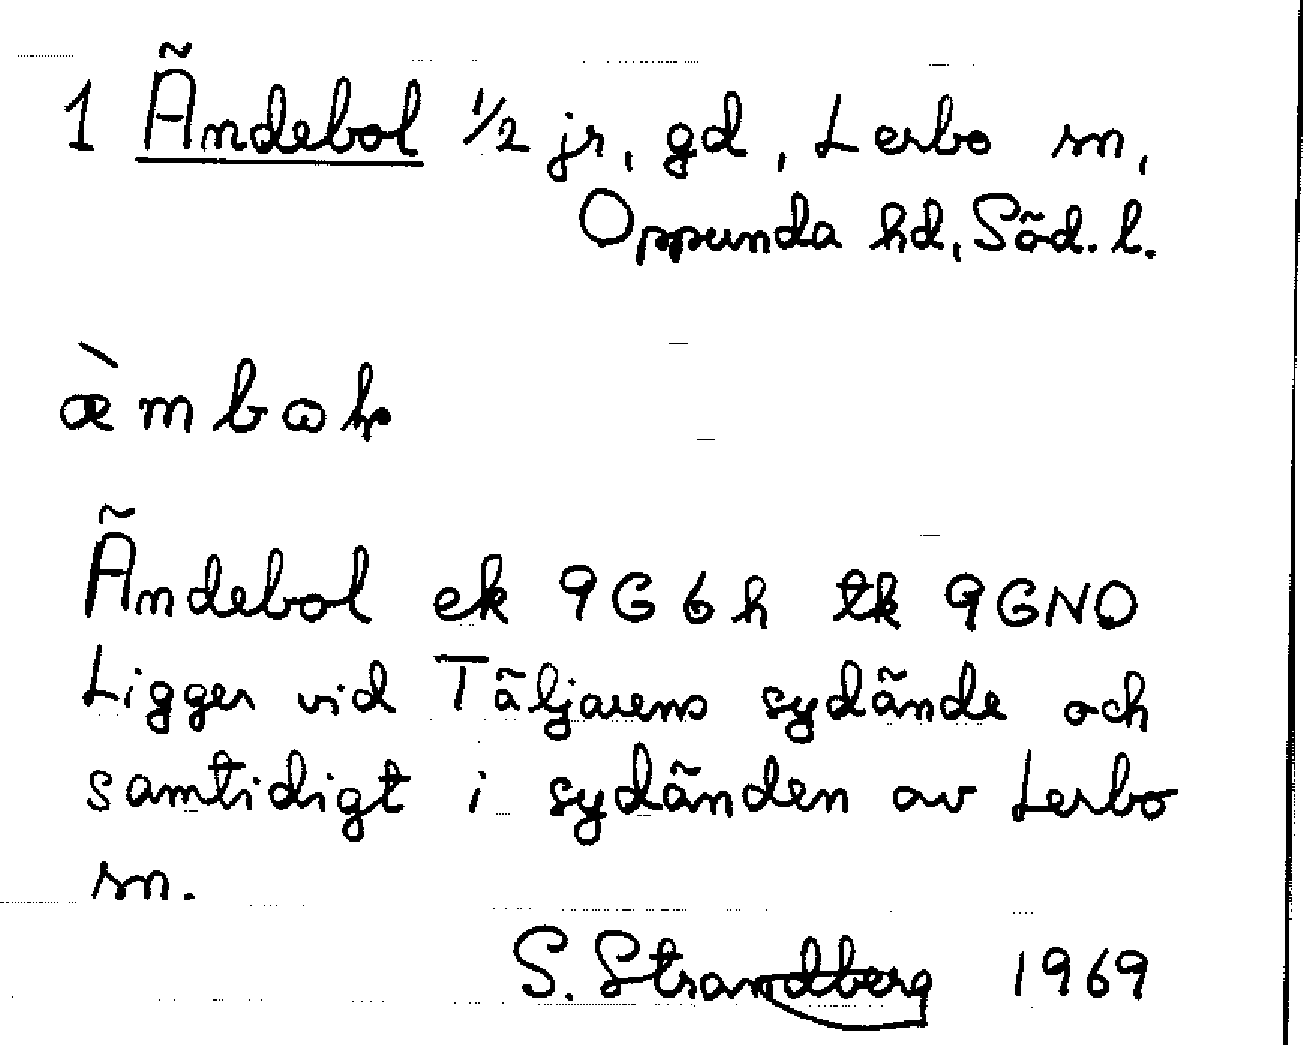 1 Ändebol ½ jr, gd, Lerbo sn,
Oppunda hd, Söd. l.
Ändebol ek 9G6h tk 9GNO
Ligger vid Täljarens sydände och
samtidigt i sydänden av Lerbo
sn.
S. Strandberg 1969